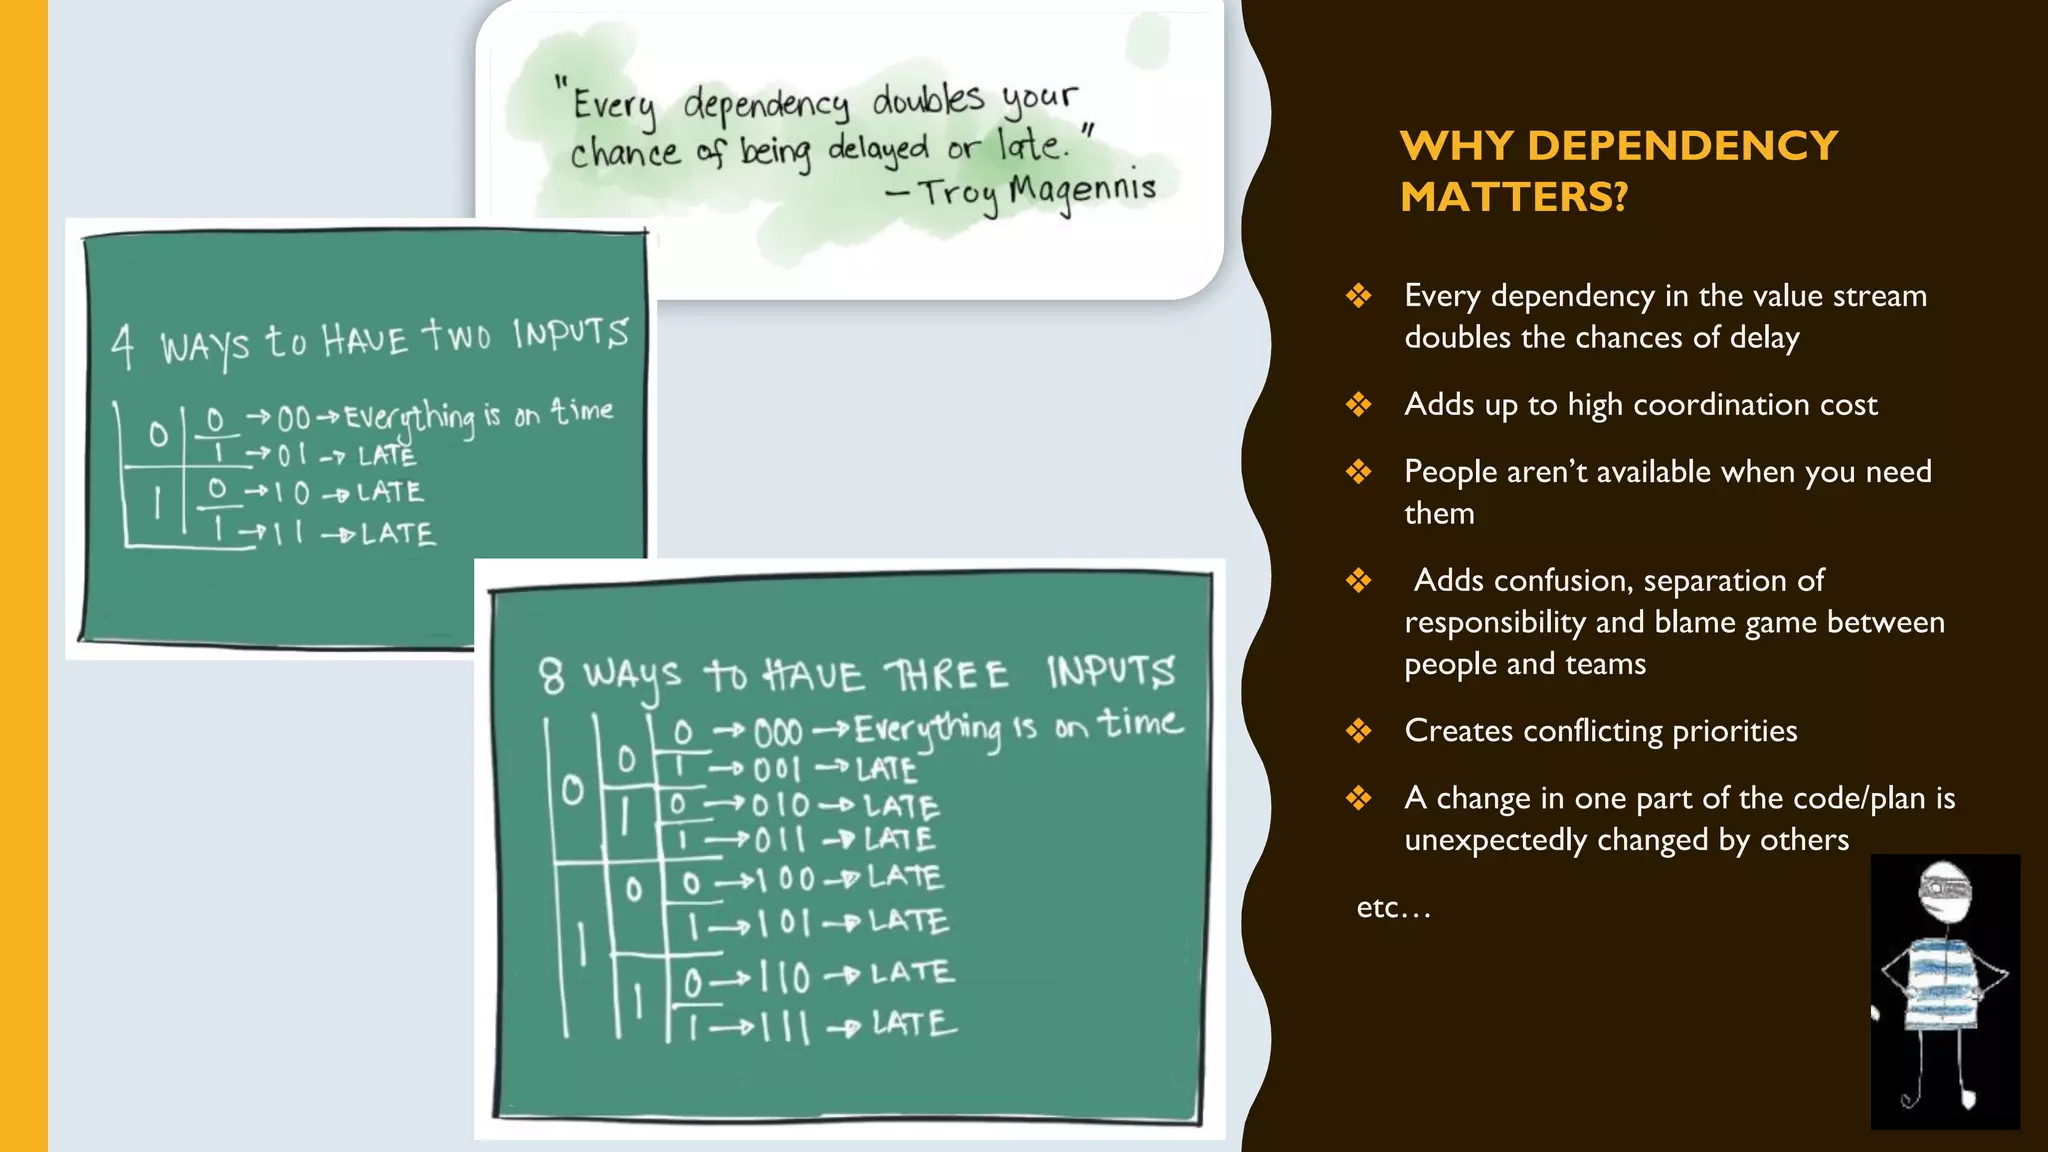 "Every dependency doubles your
chance of being delayed or late."
– Troy Magennis
4 WAYS to HAVE TWO INPUTS
0 0 → 00 → Everything is on time
1 → 01 → LATE
1 0 → 10 → LATE
1 → 11 → LATE
8 WAYS TO HAVE THREE INPUTS
0 0 0 → 000 → Everything is on time
1 → 001 → LATE
1 0 → 010 → LATE
1 → 011 → LATE
1 0 0 → 100 → LATE
1 → 101 → LATE
1 0 → 110 → LATE
1 → 111 → LATE
WHY DEPENDENCY
MATTERS?
❖ Every dependency in the value stream
doubles the chances of delay
❖ Adds up to high coordination cost
❖ People aren’t available when you need
them
❖ Adds confusion, separation of
responsibility and blame game between
people and teams
❖ Creates conflicting priorities
❖ A change in one part of the code/plan is
unexpectedly changed by others
etc…